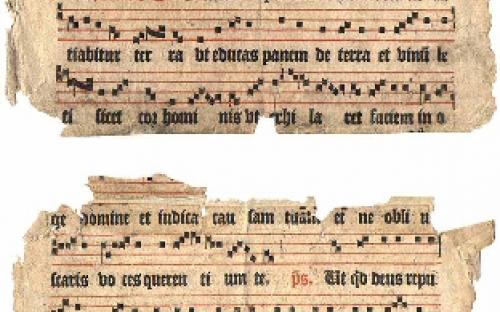 tiabitur ter ra vt educas panem de terra et vinū le
ti ficet cor homi nis vt exhi la ret faciem in o
ge domine et iudica cau sam tuā et ne obli u
scaris vo ces queren ti um te. ps. Ut qd deus repu